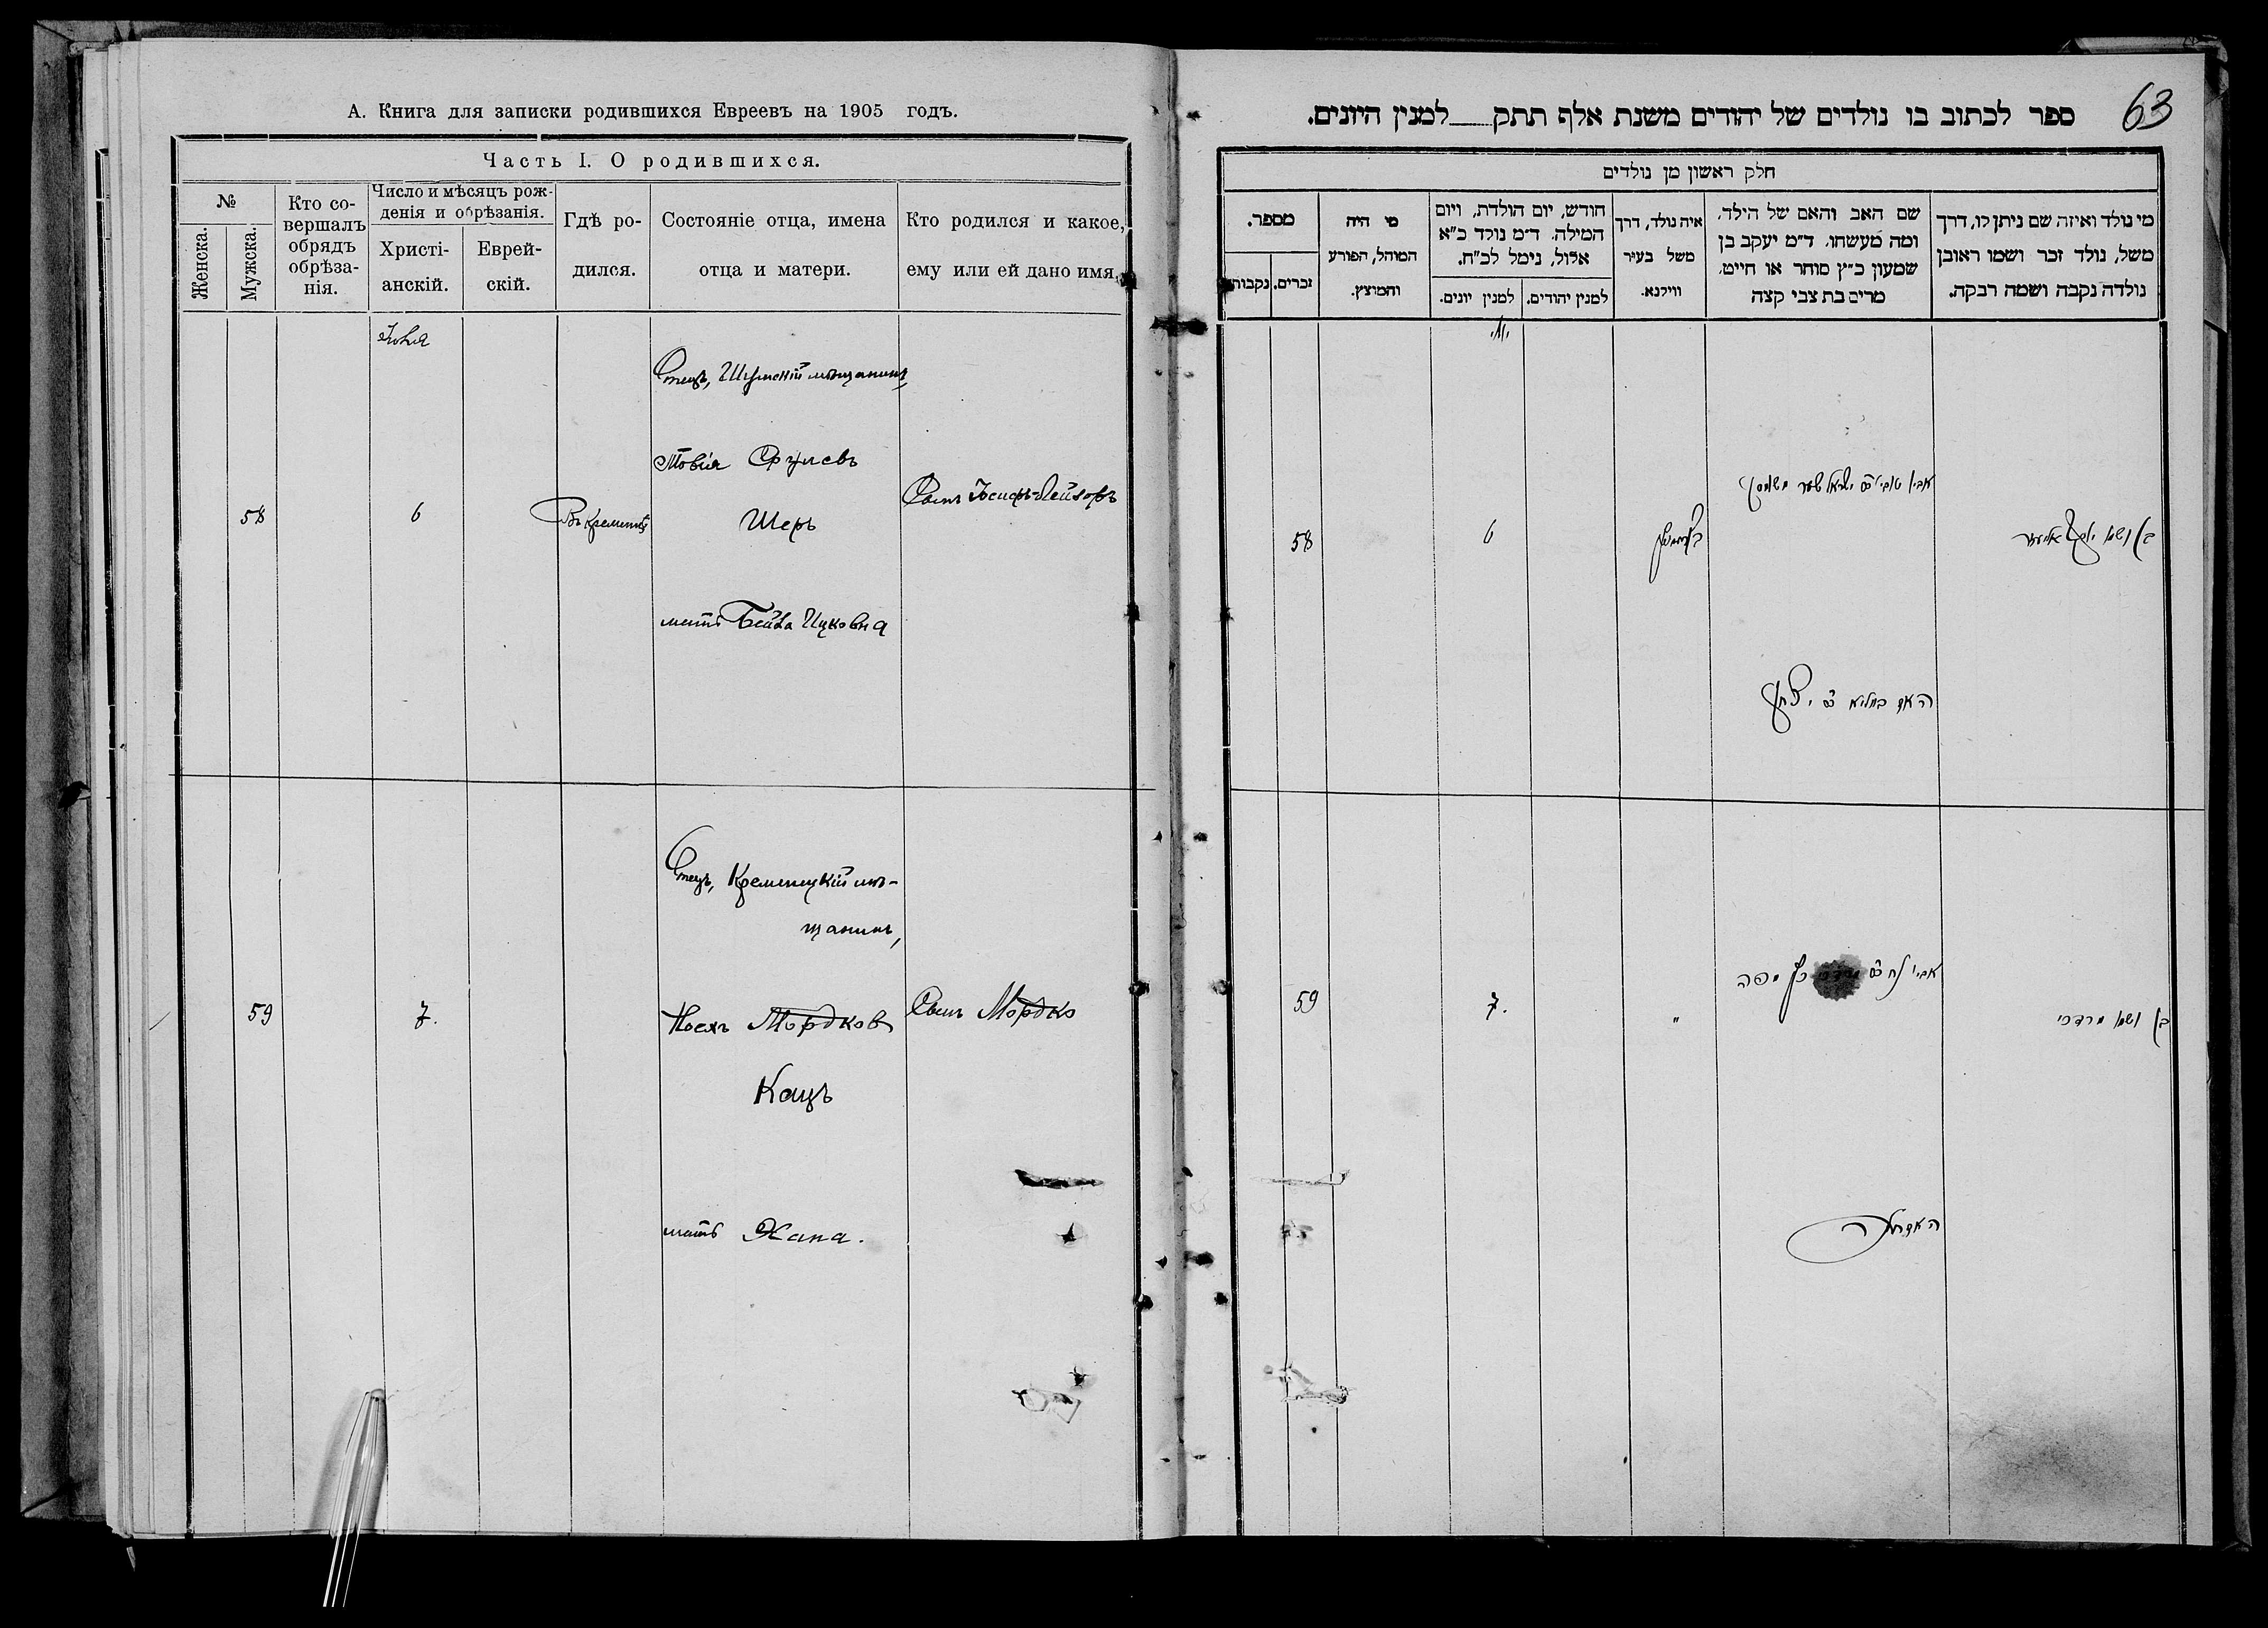 А. Книга для записки родившихся Евреевъ на 1905 годъ.
Часть I. О родившихся.
№
Женска.
Мужска.
Кто со-
вершалъ
обрядъ
обрѣза-
нія.
Число и мѣсяцъ рож-
денія и обрѣзанія.
Христі-
анскій.
Еврей-
скій.
Гдѣ ро-
дился.
Состояніе отца, имена
отца и матери.
Кто родился и какое,
ему или ей дано имя.
Отецъ, Шумскій мѣщанинъ,
Товія Сrулевъ
Шеръ
мать Бейла Ицковна
58
6
Въ Кременцѣ
Сынъ Іосифъ-Лейзоръ
Отецъ, Кременецкій мѣ-
щанинъ,
Носхъ Мордковъ
Кацъ
мать Хана.
59
7.
Сынъ Мордко
63
ספר לכתוב בו נולדים של יהודים משנת אלף תתק למנין היונים.
חלק ראשון מן נולדים
מי נולד ואיזה שם ניתן לו, דרך
משל, נולד זכר ושמו ראובן
נולדה נקבה ושמה רבקה.
שם האב והאם של הילד,
ומה מעשהו. ד״מ יעקב בן
שמעון כ״ץ סוחר או חייט,
מרים בת צבי קצה
איה נולד, דרך
משל בעיר
ווילנא.
חודש, יום הולדת, ויום
המילה. ד״מ נולד כ״א
אלול, נימל לכ״ח.
למנין יהודים.
למנין יונים.
מי היה
המוהל, הפורע
והמוצץ.
מספר.
זכרים.
נקבות.
בן ושמו יוסף אליעזר
6
58
האם
יצחק
אביו
כץ
בן ושמו מרדכי
"
7.
59
האם חנה